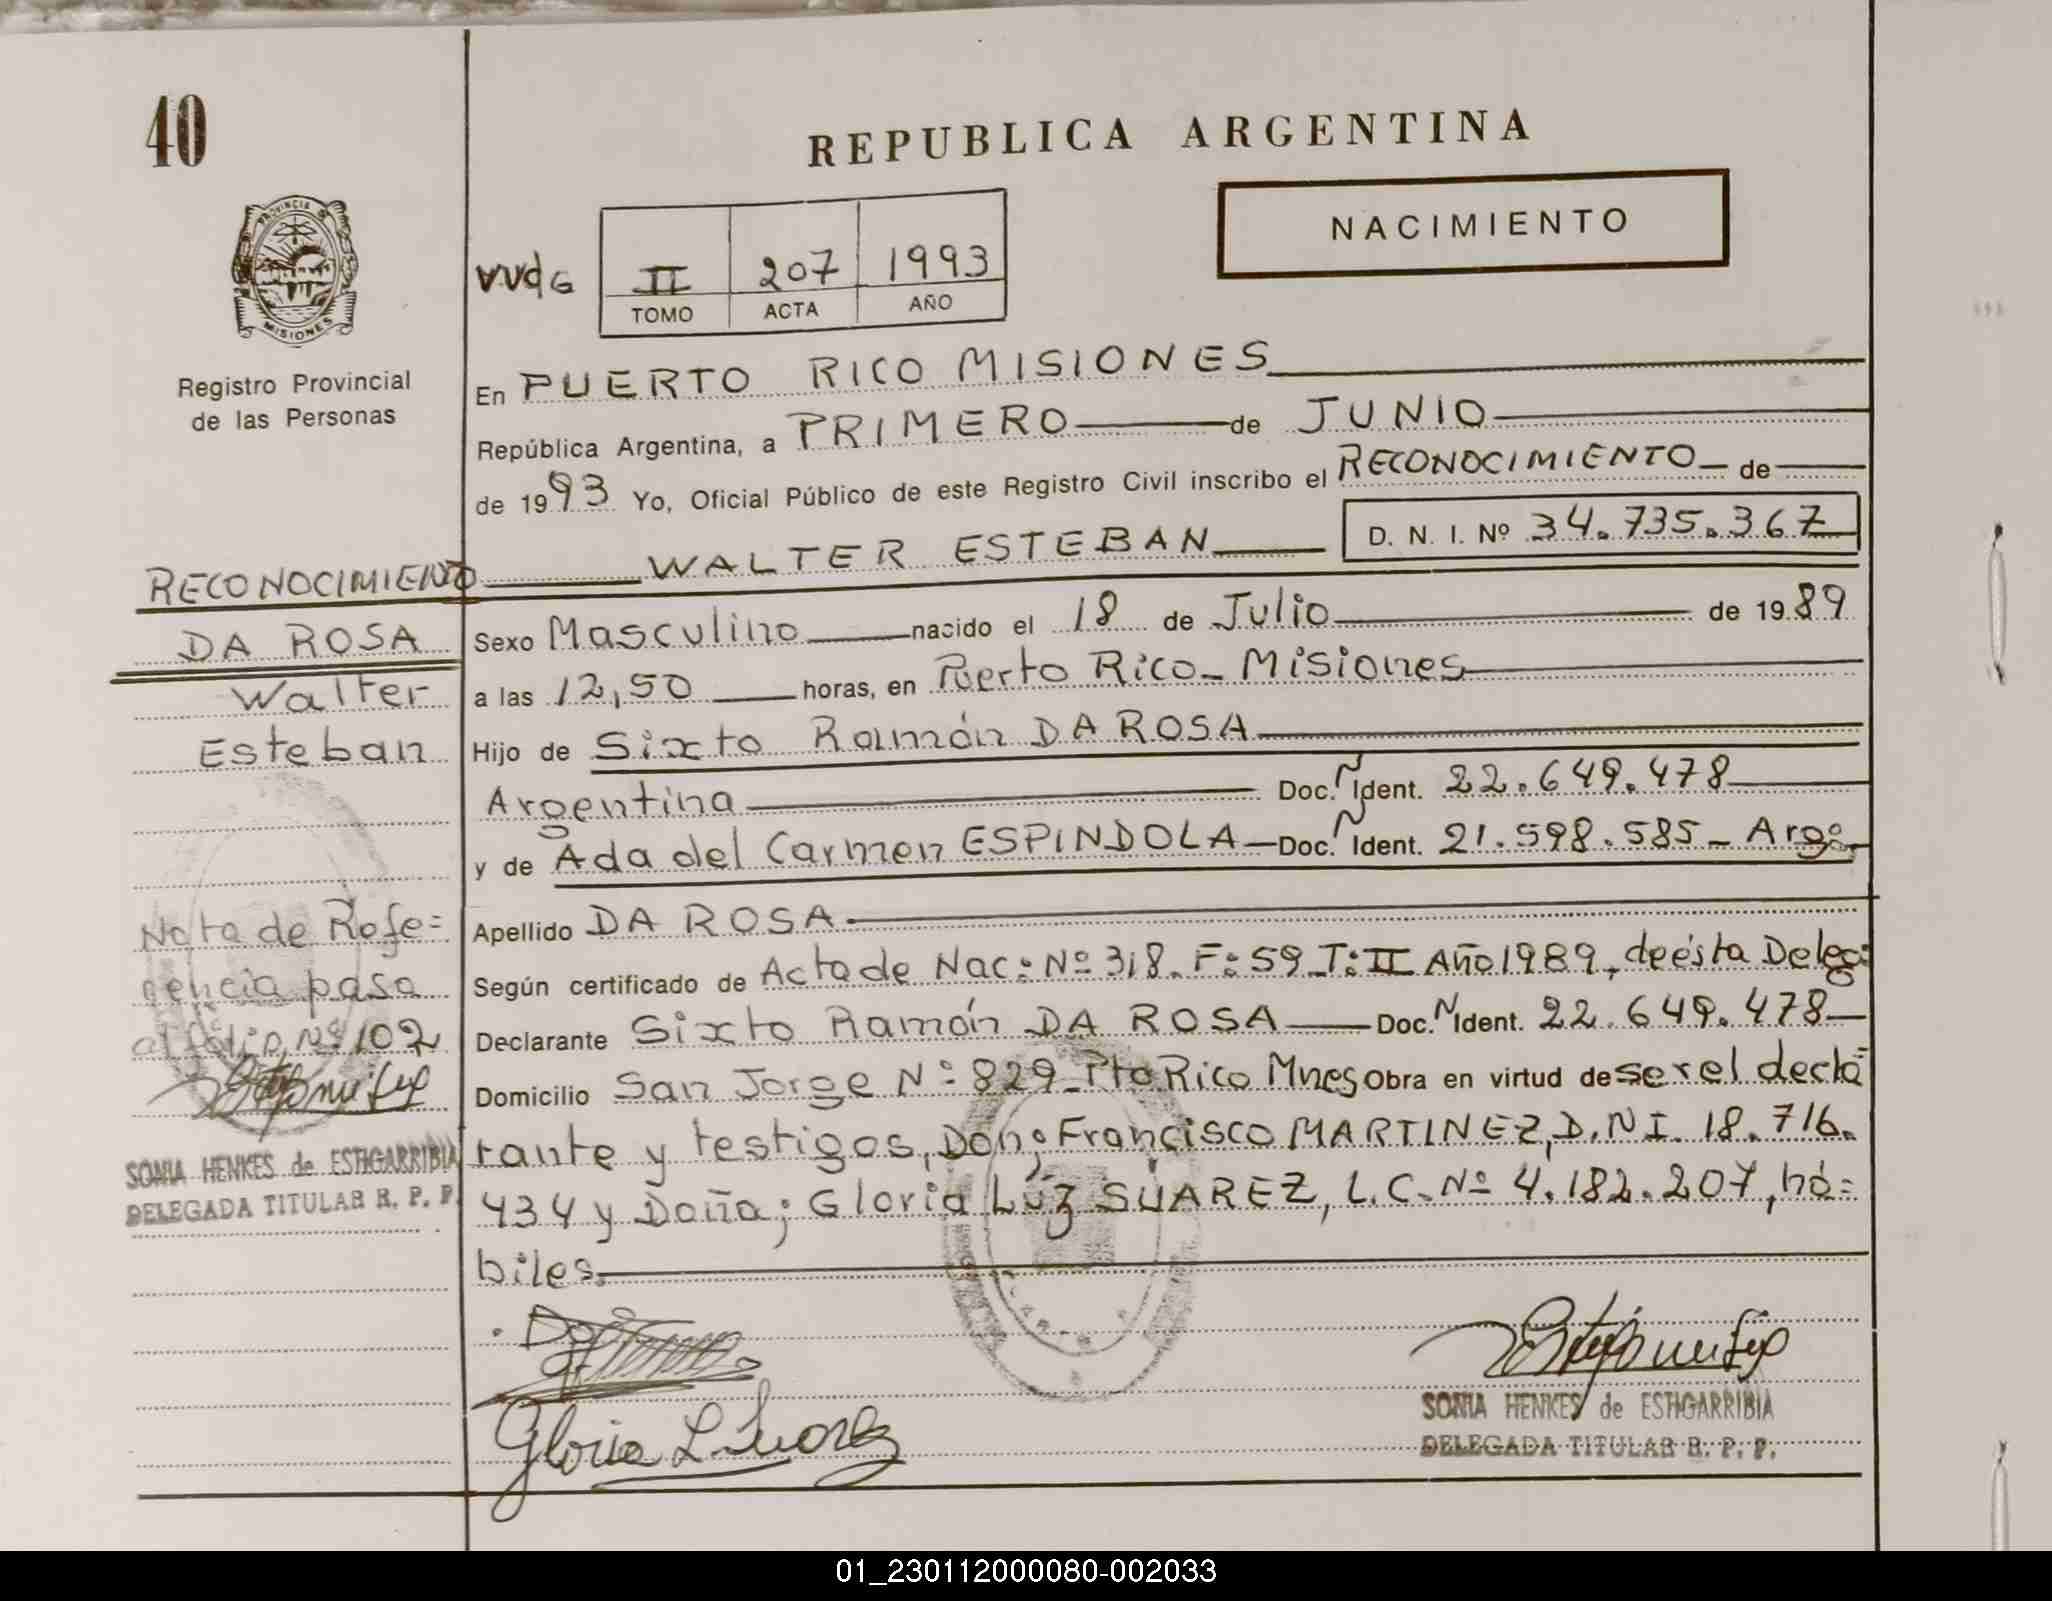 40
REPUBLICA ARGENTINA
NACIMIENTO
PROVINCIA D
MISIONES
II 207 1993
TOMO ACTA AÑO
Registro Provincial
de las Personas
En PUERTO RICO MISIONES
República Argentina, a PRIMERO de JUNIO
de 1993 Yo, Oficial Público de este Registro Civil inscribo el RECONOCIMIENTO de
WALTER ESTEBAN D. N. I. Nº 34.735.367
RECONOCIMIENTO
DA ROSA
Walter
Esteban
Sexo Masculino nacido el 18 de Julio de 1989
a las 12,50 horas, en Puerto Rico - Misiones
Hijo de Sixto Ramón DA ROSA
Argentina Doc. N Ident. 22.649.478
y de Ada del Carmen ESPINDOLA - Doc. N Ident. 21.598.585 - Arg.
Apellido DA ROSA
Según certificado de Acta de Nac: Nº 318. F: 59 T: II Año 1989, de ésta Deleg:
Declarante Sixto Ramón DA ROSA Doc. N Ident. 22.649.478
Domicilio San Jorge Nº 829 - Pto Rico Mnes Obra en virtud de ser el decla
rante y testigos, Don; Francisco MARTINEZ, D.N.I. 18.716.
434 y Doña; Gloria Lúz SUAREZ, L.C. Nº 4.182.207, há=
biles.
Nota de Refe=
rencia pasa
al folio Nº 102
SONIA HENKES de ESTIGARRIBIA
DELEGADA TITULAR R. P. P.
Gloria L Suarez
SONIA HENKES de ESTIGARRIBIA
DELEGADA TITULAR R. P. P.
01_230112000080-002033